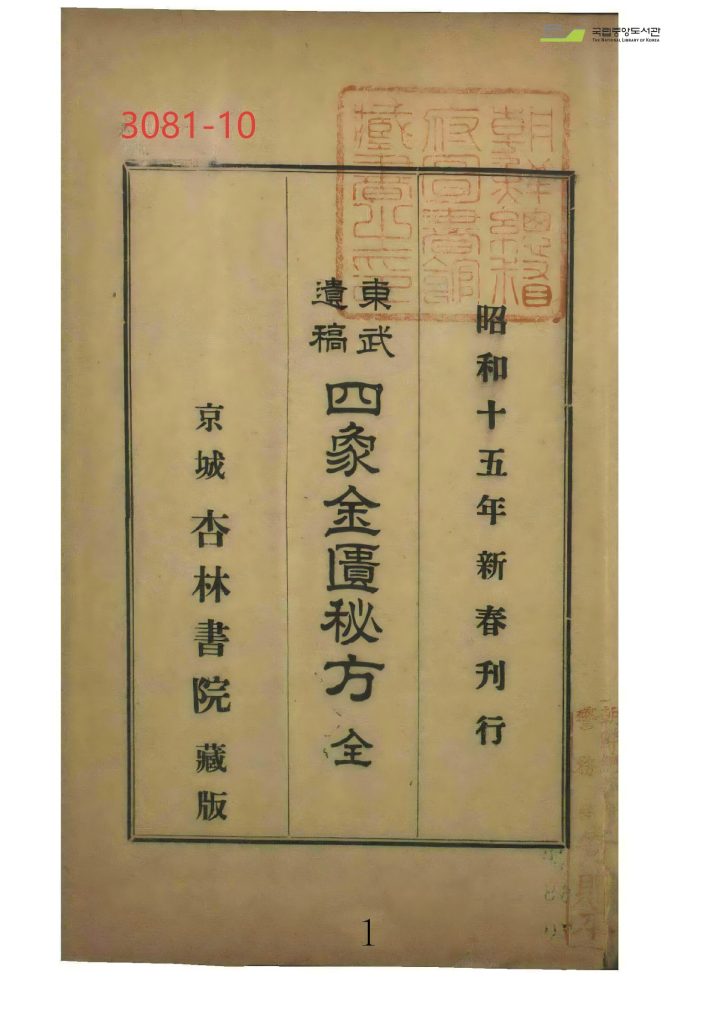 국립중앙도서관
THE NATIONAL LIBRARY OF KOREA
3081-10
朝鮮總督
府圖書館
藏書之印
昭和十五年新春刊行
東武
遺稿
四象金匱秘方 全
京城 杏林書院 藏版
1